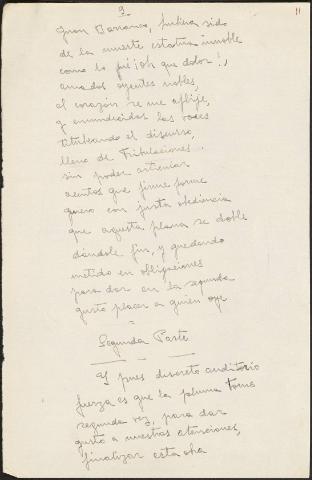 9
11
Juan Barranco, hubiera sido
de la muerte estatua inmoble
como lo fué ¡oh que dolor!,
amados oyentes nobles,
el corazón se me aflije,
y enmudecidas las voces
titubeando el discurso,
lleno de Tribulaciones.
sin poder articular
acentos que firme forme
quiero con justa obediencia
que aquesta plana se doble
dándole fin, y quedando
metido en obligaciones
para dar en la segunda
gusto placer a quien oye
Segunda Parte
Y pues discreto auditorio
fuerza es que la pluma tome
segunda vez, para dar
gusto a vuestras atenciones,
finalizar esta